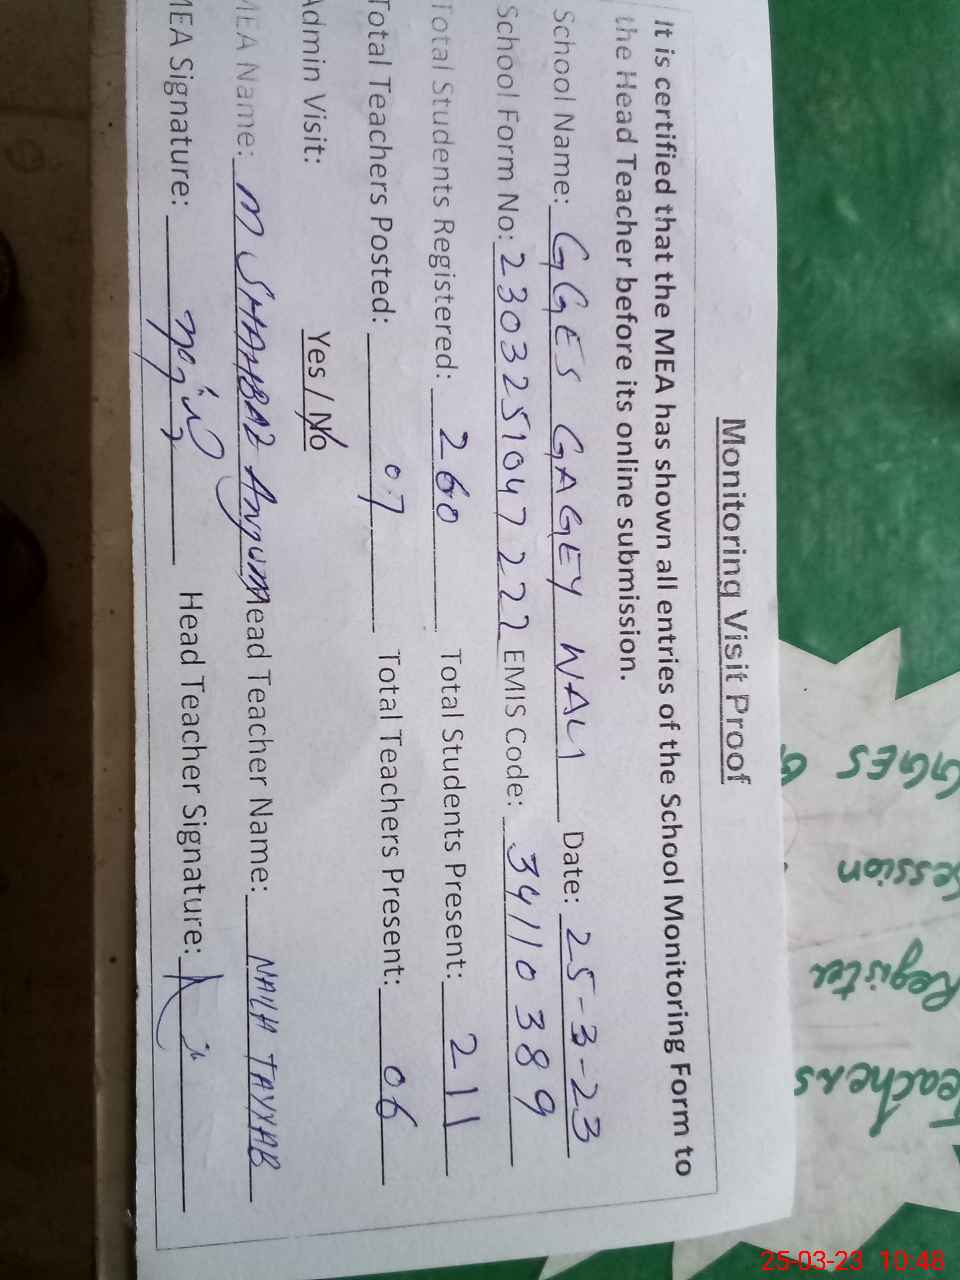 Monitoring Visit Proof
It is certified that the MEA has shown all entries of the School Monitoring Form to
the Head Teacher before its online submission.
School Name: GGES GAGEY WALI Date: 25-3-23
School Form No: 2303251047222 EMIS Code: 34110389
Total Students Registered: 260 Total Students Present: 211
Total Teachers Posted: 07 Total Teachers Present: 06
Admin Visit: Yes / No
MEA Name: M SHAHBAZ Anjum ead Teacher Name: NAILA TAYYAB
MEA Signature: Head Teacher Signature:
GGES G
Session
Register
Teachers
25-03-23 10:48